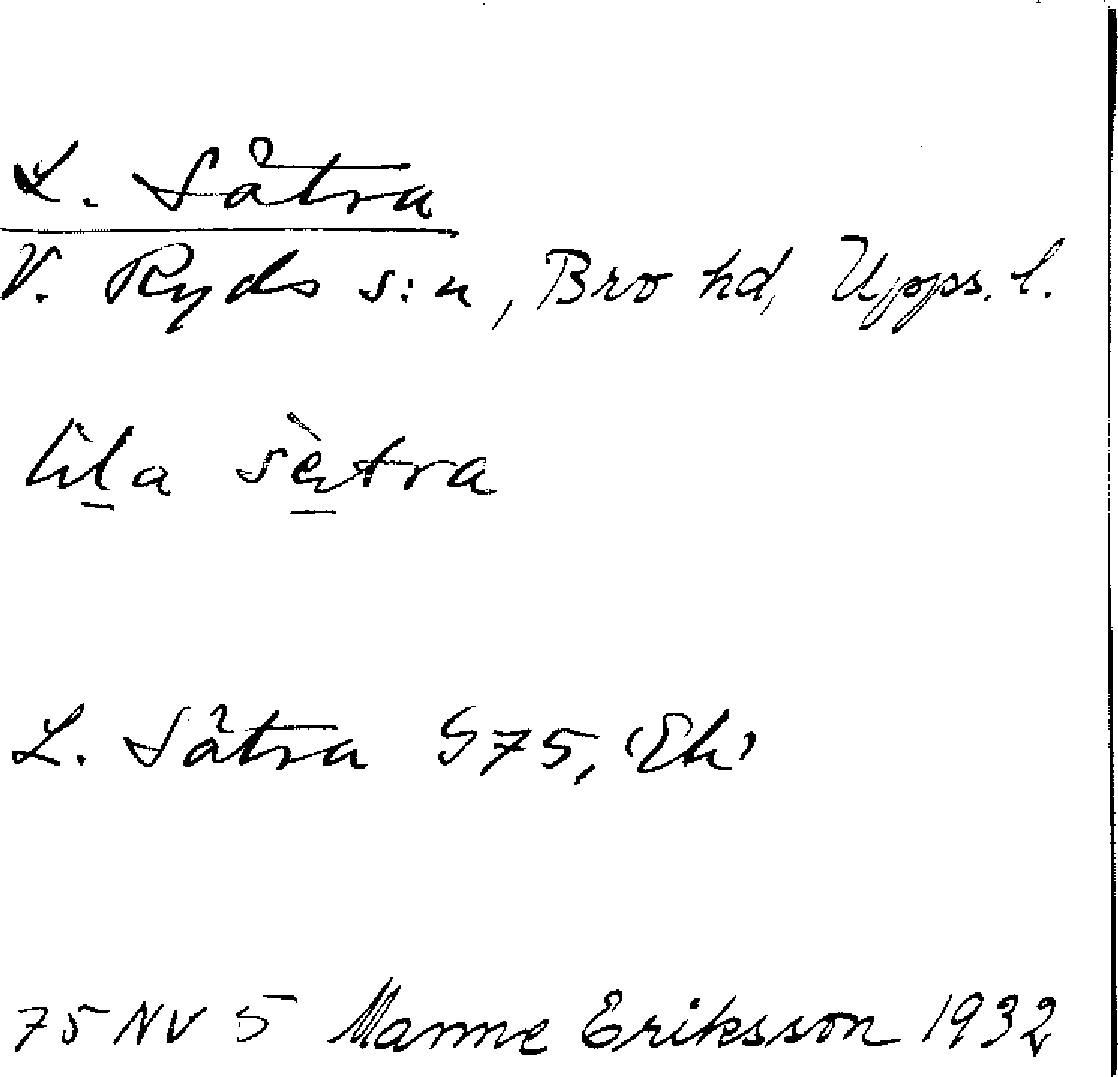 L. Såtra
V. Ryds s:n, Bro hd, Upps. l.
lila sètra
L. Såtra G75, (Ek)
75 NV 5 Manne Eriksson 1932